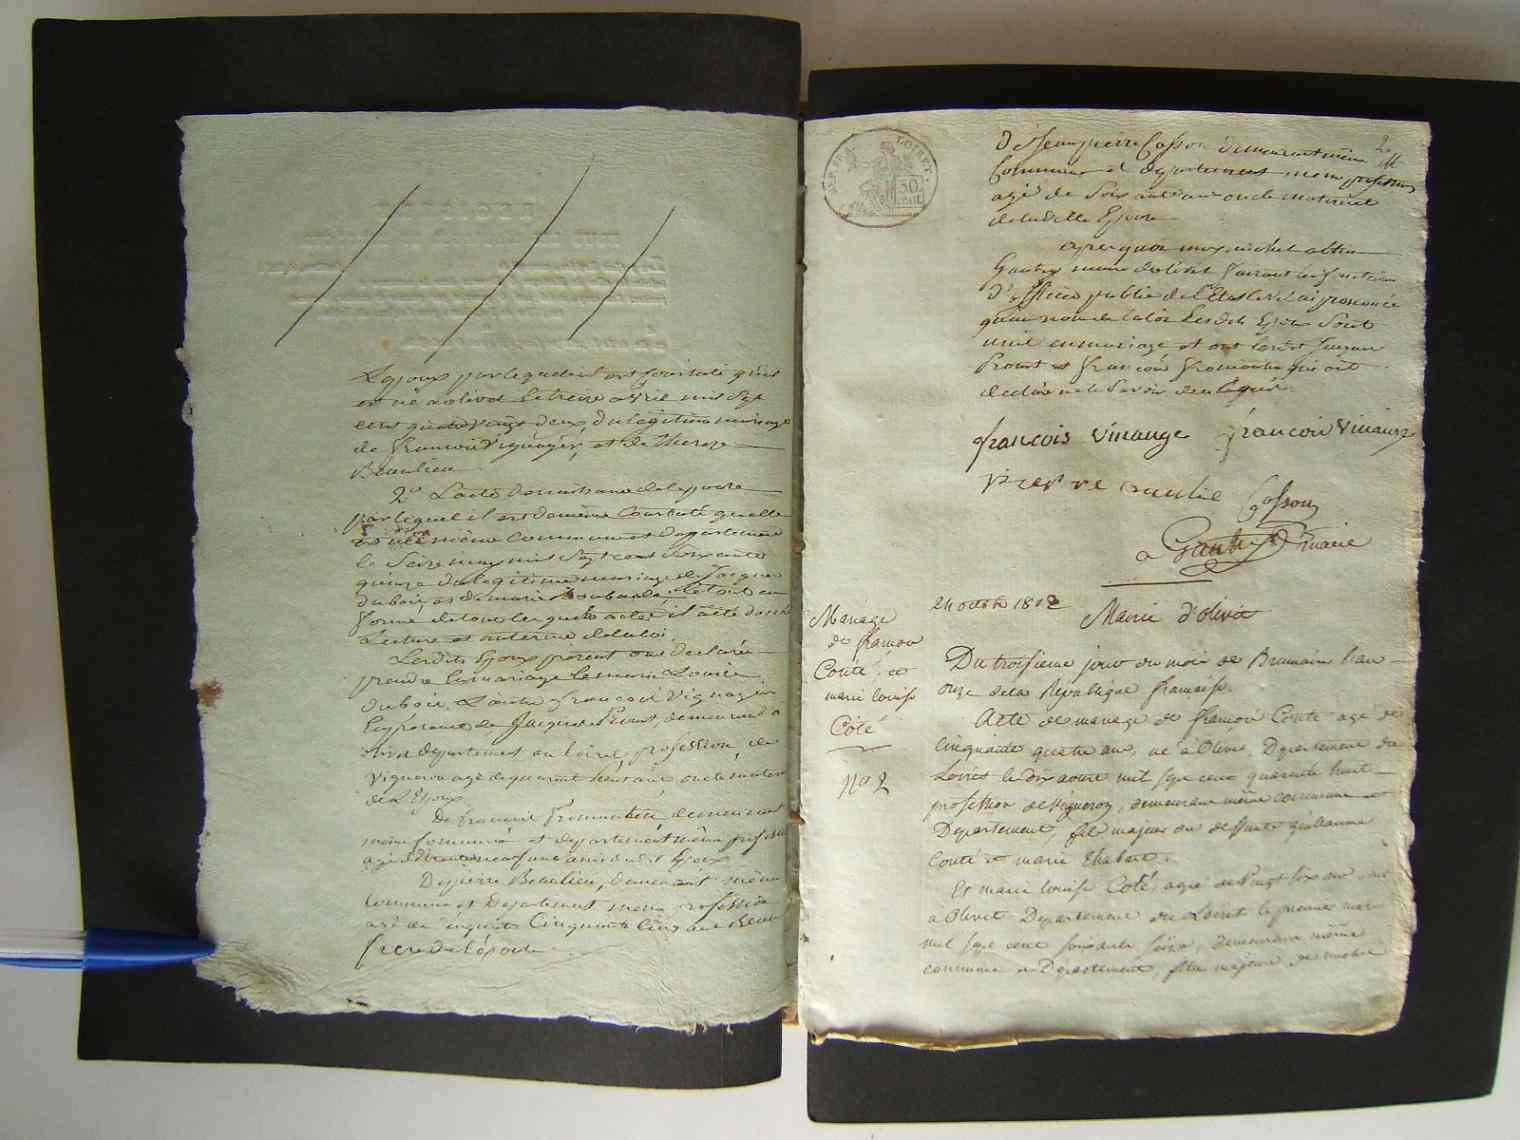 Lepoux par lequel il est Constaté qu'il
est né a olivet le treize avril mil sept
cent quatre vingt deux, du légitime mariage
de françois Vignager, et de Therese
Beaulieu
2° L'acte de naissance de lepouse
par lequel il est de même Constaté quelle
est née même commune et departement
le Seize may mil Sept cent Soixante
quinze du légitime mariage de Jacques
dubois, et de marie
forme de tous lesquels actes il a été donné
Lecture
Lesdits Epoux present ont declarés
prendre En mariage Lun marie Louise
Dubois, L'autre françois Vignager
En présence de Jacques Prout, demeurant a
olivet département du loiret, profession, de
Vigneron agé de quarante huit ans oncle
de L'Epoux
De françois demeurant
même Commune et departement même profession
ami dudit Epoux
De pierre Beaulieu, demeurant même
Commune et Departement même profession
agé de Cinquante Cinq ans Beau
frere de l'épouse
DEP. DU LOIRET.
50 CENT.
2
De Jean pierre Cosson demeurant même
Commune et departement meme profession
agé de Soixante ans oncle maternel
de ladite Epouse
apres quoi moy michel
Gautry maire d'olivet faisant les fonctions
D'officier public de l'Etat Civil ai prononcé
qu'au nom de la loi Lesdits Epoux Sont
unit en mariage et ont lesdit Jacques
Prout et françois qui ont
declaré ne le Savoir de ce Requis.
françois vinauge françois vinauge
pierre baulie Cosson
a Gautry Maire
24 octobre 1802
Mairie d'olivet
Mariage
de francois
Couté et
marie louise
Côté
No. 2
Du troisieme jour du mois de Brumaire l'an
onze de la Republique française.
Acte de mariage de françois Couté agé de
cinquante quatre ans, né à Olivet, Departement du
Loiret le dix aout mil sept cent quarante huit
profession de Vigneron, demeurant même commune et
Departement, fils majeur de deffunte guillaume
Couté et marie Chabert.
Et marie louise Coté, agée de Vingt Six ans née
a Olivet Departement du Loiret le premier mars
mil sept cent soixante seize, demeurant même
commune et Departement, fille majeure de michel